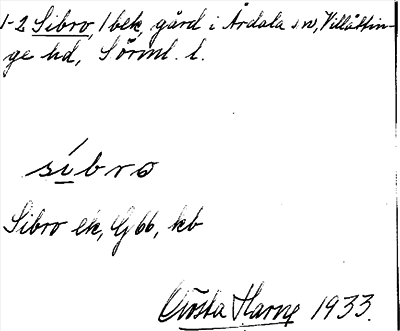 1-2 Sibro, 1 bek, gård i Årdala sn, Villåttin-
ge hd, Sörml. l.
síbro
Sibro ek, G66, kb
Gösta Harne 1933.